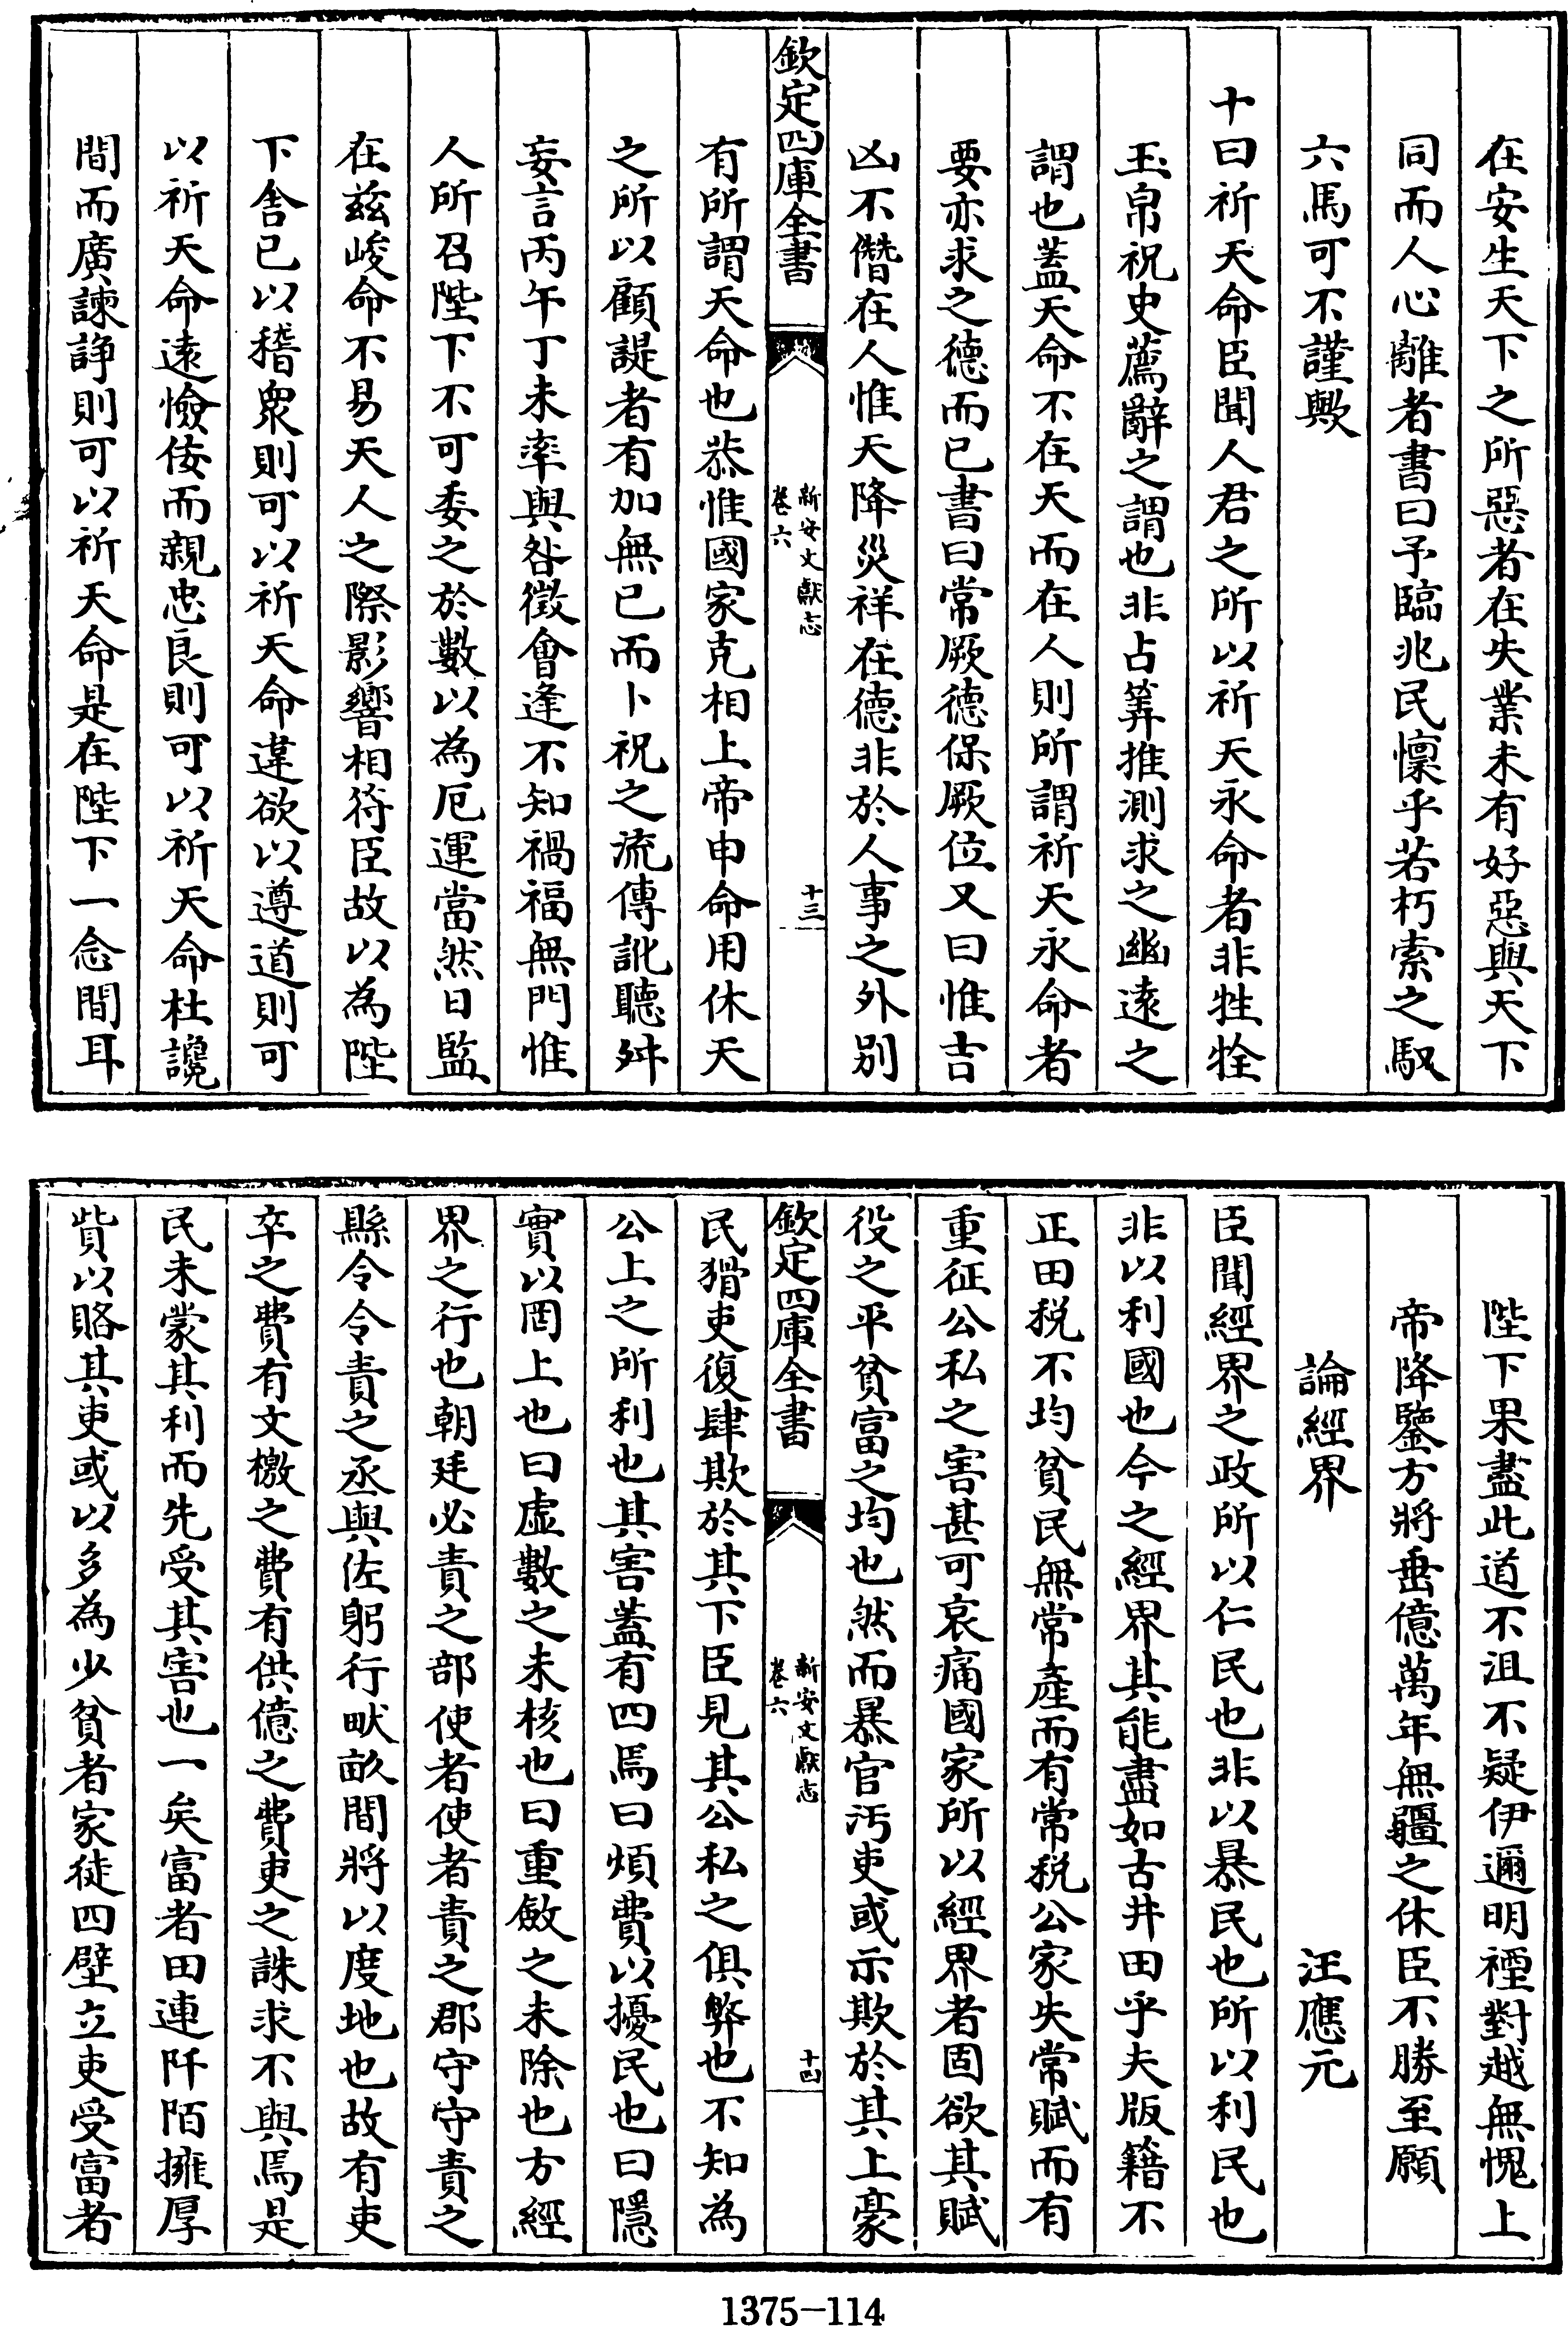 在安生天下之所惡者在失業未有好惡與天下
同而人心離者書曰予臨兆民懍乎若朽索之馭
六馬可不謹歟
十曰祈天命臣聞人君之所以祈天永命者非牲牷
玉帛祝史薦辭之謂也非占筭推測求之幽遠之
謂也蓋天命不在天而在人則所謂祈天永命者
要亦求之德而已書曰常厥德保厥位又曰惟吉
凶不僭在人惟天降災祥在德非於人事之外别
欽定四庫全書
新安文獻志
卷六
十三
有所謂天命也恭惟國家克相上帝申命用休天
之所以顧諟者有加無已而卜祝之流傳訛聽舛
妄言丙午丁未率與咎徵會逢不知禍福無門惟
人所召陛下不可委之於數以為厄運當然日監
在兹峻命不易天人之際影響相符臣故以為陛
下舍已以稽衆則可以祈天命違欲以遵道則可
以祈天命遠憸佞而親忠良則可以祈天命杜讒
間而廣諫諍則可以祈天命是在陛下一念間耳
陛下果盡此道不沮不疑伊邇明禋對越無愧上
帝降鑒方將垂億萬年無疆之休臣不勝至願
論經界 汪應元
臣聞經界之政所以仁民也非以暴民也所以利民也
非以利國也今之經界其能盡如古井田乎夫版籍不
正田税不均貧民無常產而有常税公家失常賦而有
重征公私之害甚可哀痛國家所以經界者固欲其賦
役之平貧富之均也然而暴官汚吏或示欺於其上豪
欽定四庫全書
新安文獻志
卷六
十四
民猾吏復肆欺於其下臣見其公私之俱弊也不知為
公上之所利也其害蓋有四焉曰煩費以擾民也曰隱
實以罔上也曰虛數之未核也曰重斂之未除也方經
界之行也朝廷必責之部使者使者責之郡守守責之
縣令令責之丞與佐躬行畎畝間將以度地也故有吏
卒之費有文檄之費有供億之費吏之誅求不與焉是
民未蒙其利而先受其害也一矣富者田連阡陌擁厚
貲以賂其吏或以多為少貧者家徒四壁立吏受富者
1375-114